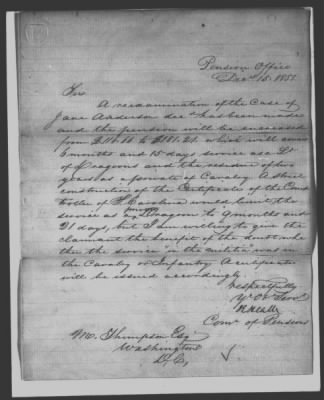 Pension Office
Decr 15. 1851.
Sir
A reexamination of the case of
Jane Anderson decd has been made
and the pension will be increased
from $ to $181.21. which will cover
6 months and 15 days service as a
of Dragoons and the residue of two
years as a private of Cavalry. A strict
construction of the Certificate of the Comp
troller of S Carolina would limit the
service as a Dragoon to 9 months and
21 days, but I am willing to give the
claimant the benefit of the doubt whe
ther the service in the militia was in
the Cavalry or Infantry. A certificate
will be issued accordingly.
Respectfully
Yr Ob Servt
Comr of Pensions
M. Thompson Esq
Washington
D.C.